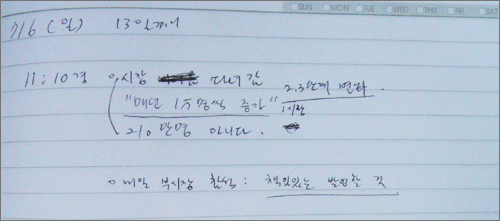 SUN MON TUE WED THU FRI SAT
7/6 (일) 13일째
11:10경 시장 다녀감
"매년 1조명씩 증가" 2,3단계 변화.
시장
210만명 아니다.
o 내일 부시장 참석: 책임있는 발언할 것